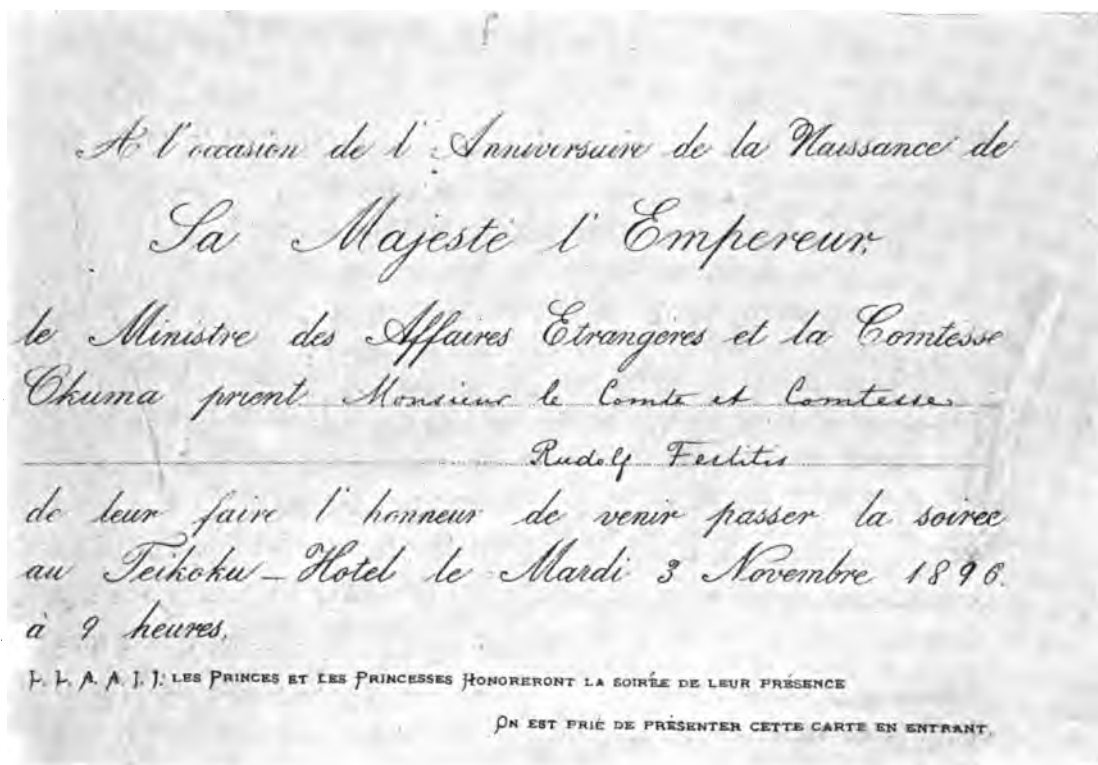 A l'occasion de l'Anniversaire de la Naissance de
Sa Majesté l'Empereur,
le Ministre des Affaires Etrangères et la Comtesse
Okuma prient Monsieur le Comte et Comtesse
Rudolf Festitis
de leur faire l'honneur de venir passer la soirée
au Teikoku-Hotel le Mardi 3 Novembre 1896.
à 9 heures.
L. L. A. A. I. I. LES PRINCES ET LES PRINCESSES HONORERONT LA SOIRÉE DE LEUR PRÉSENCE
ON EST PRIÉ DE PRÉSENTER CETTE CARTE EN ENTRANT.